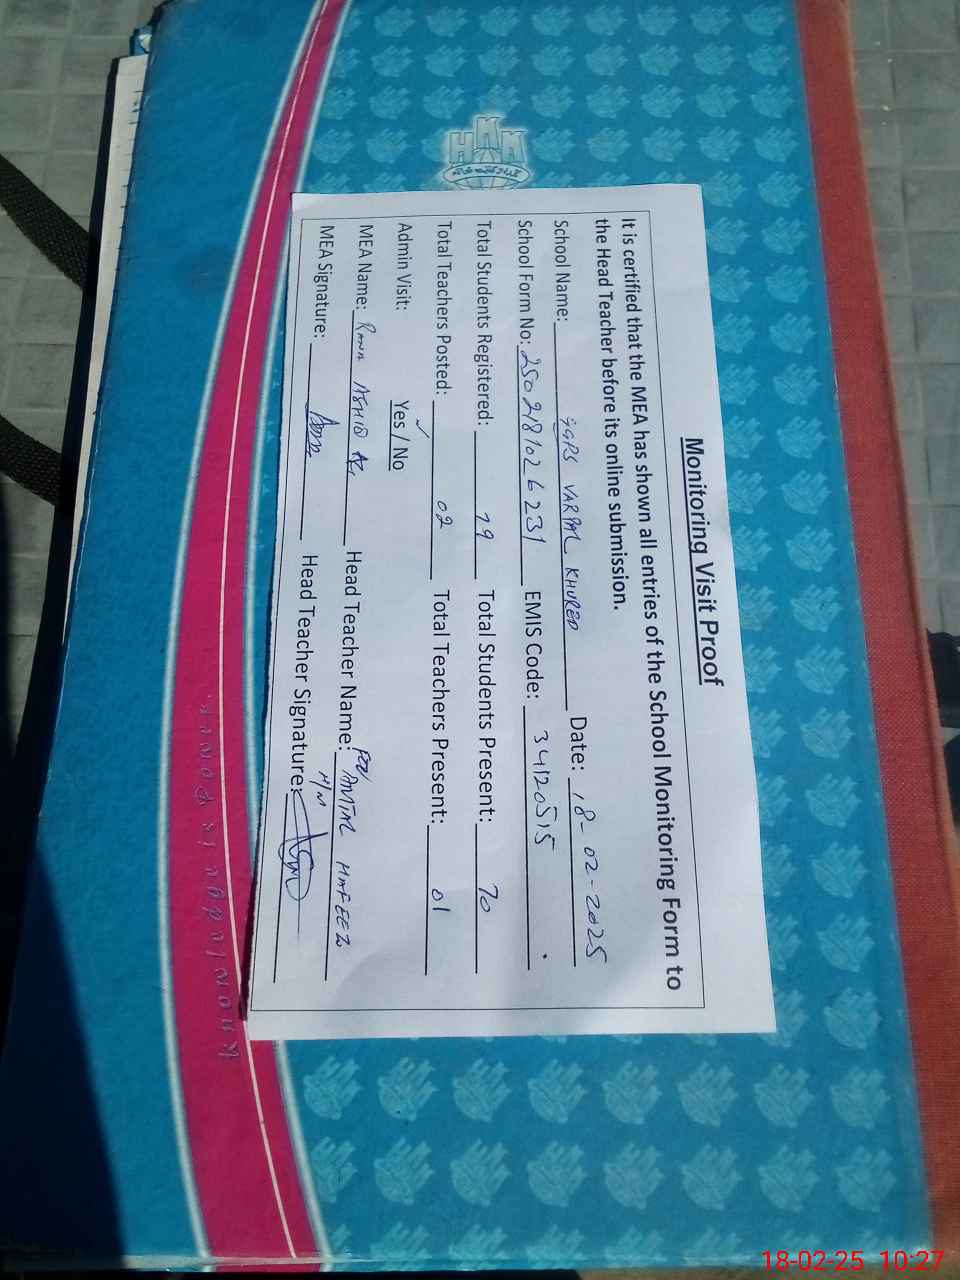 Monitoring Visit Proof
It is certified that the MEA has shown all entries of the School Monitoring Form to
the Head Teacher before its online submission.
School Name: GGPS VARPAL KHURED Date: 18-02-2025
School Form No: 2502181026231 EMIS Code: 34120515
Total Students Registered: 79 Total Students Present: 70
Total Teachers Posted: 02 Total Teachers Present: 01
Admin Visit: Yes / No
MEA Name: RANA Head Teacher Name: HAFEEZ
MEA Signature: Head Teacher Signature:
H/M
18-02-25 10:27